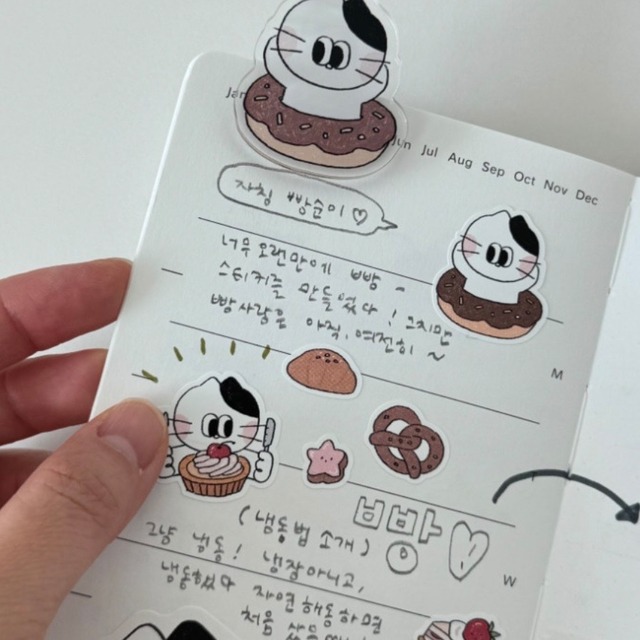 Jul Aug Sep Oct Nov Dec
자칭 빵순이♡
너무 오랜만에 빵빵 ~
스티커를 만들었다! 그치만
빵사랑은 아직, 여전히 ~
M
빵빵♡
(냉동법 소개)
그냥 냉동! 냉장아니고,
W
냉동했다 자연해동하면
처음